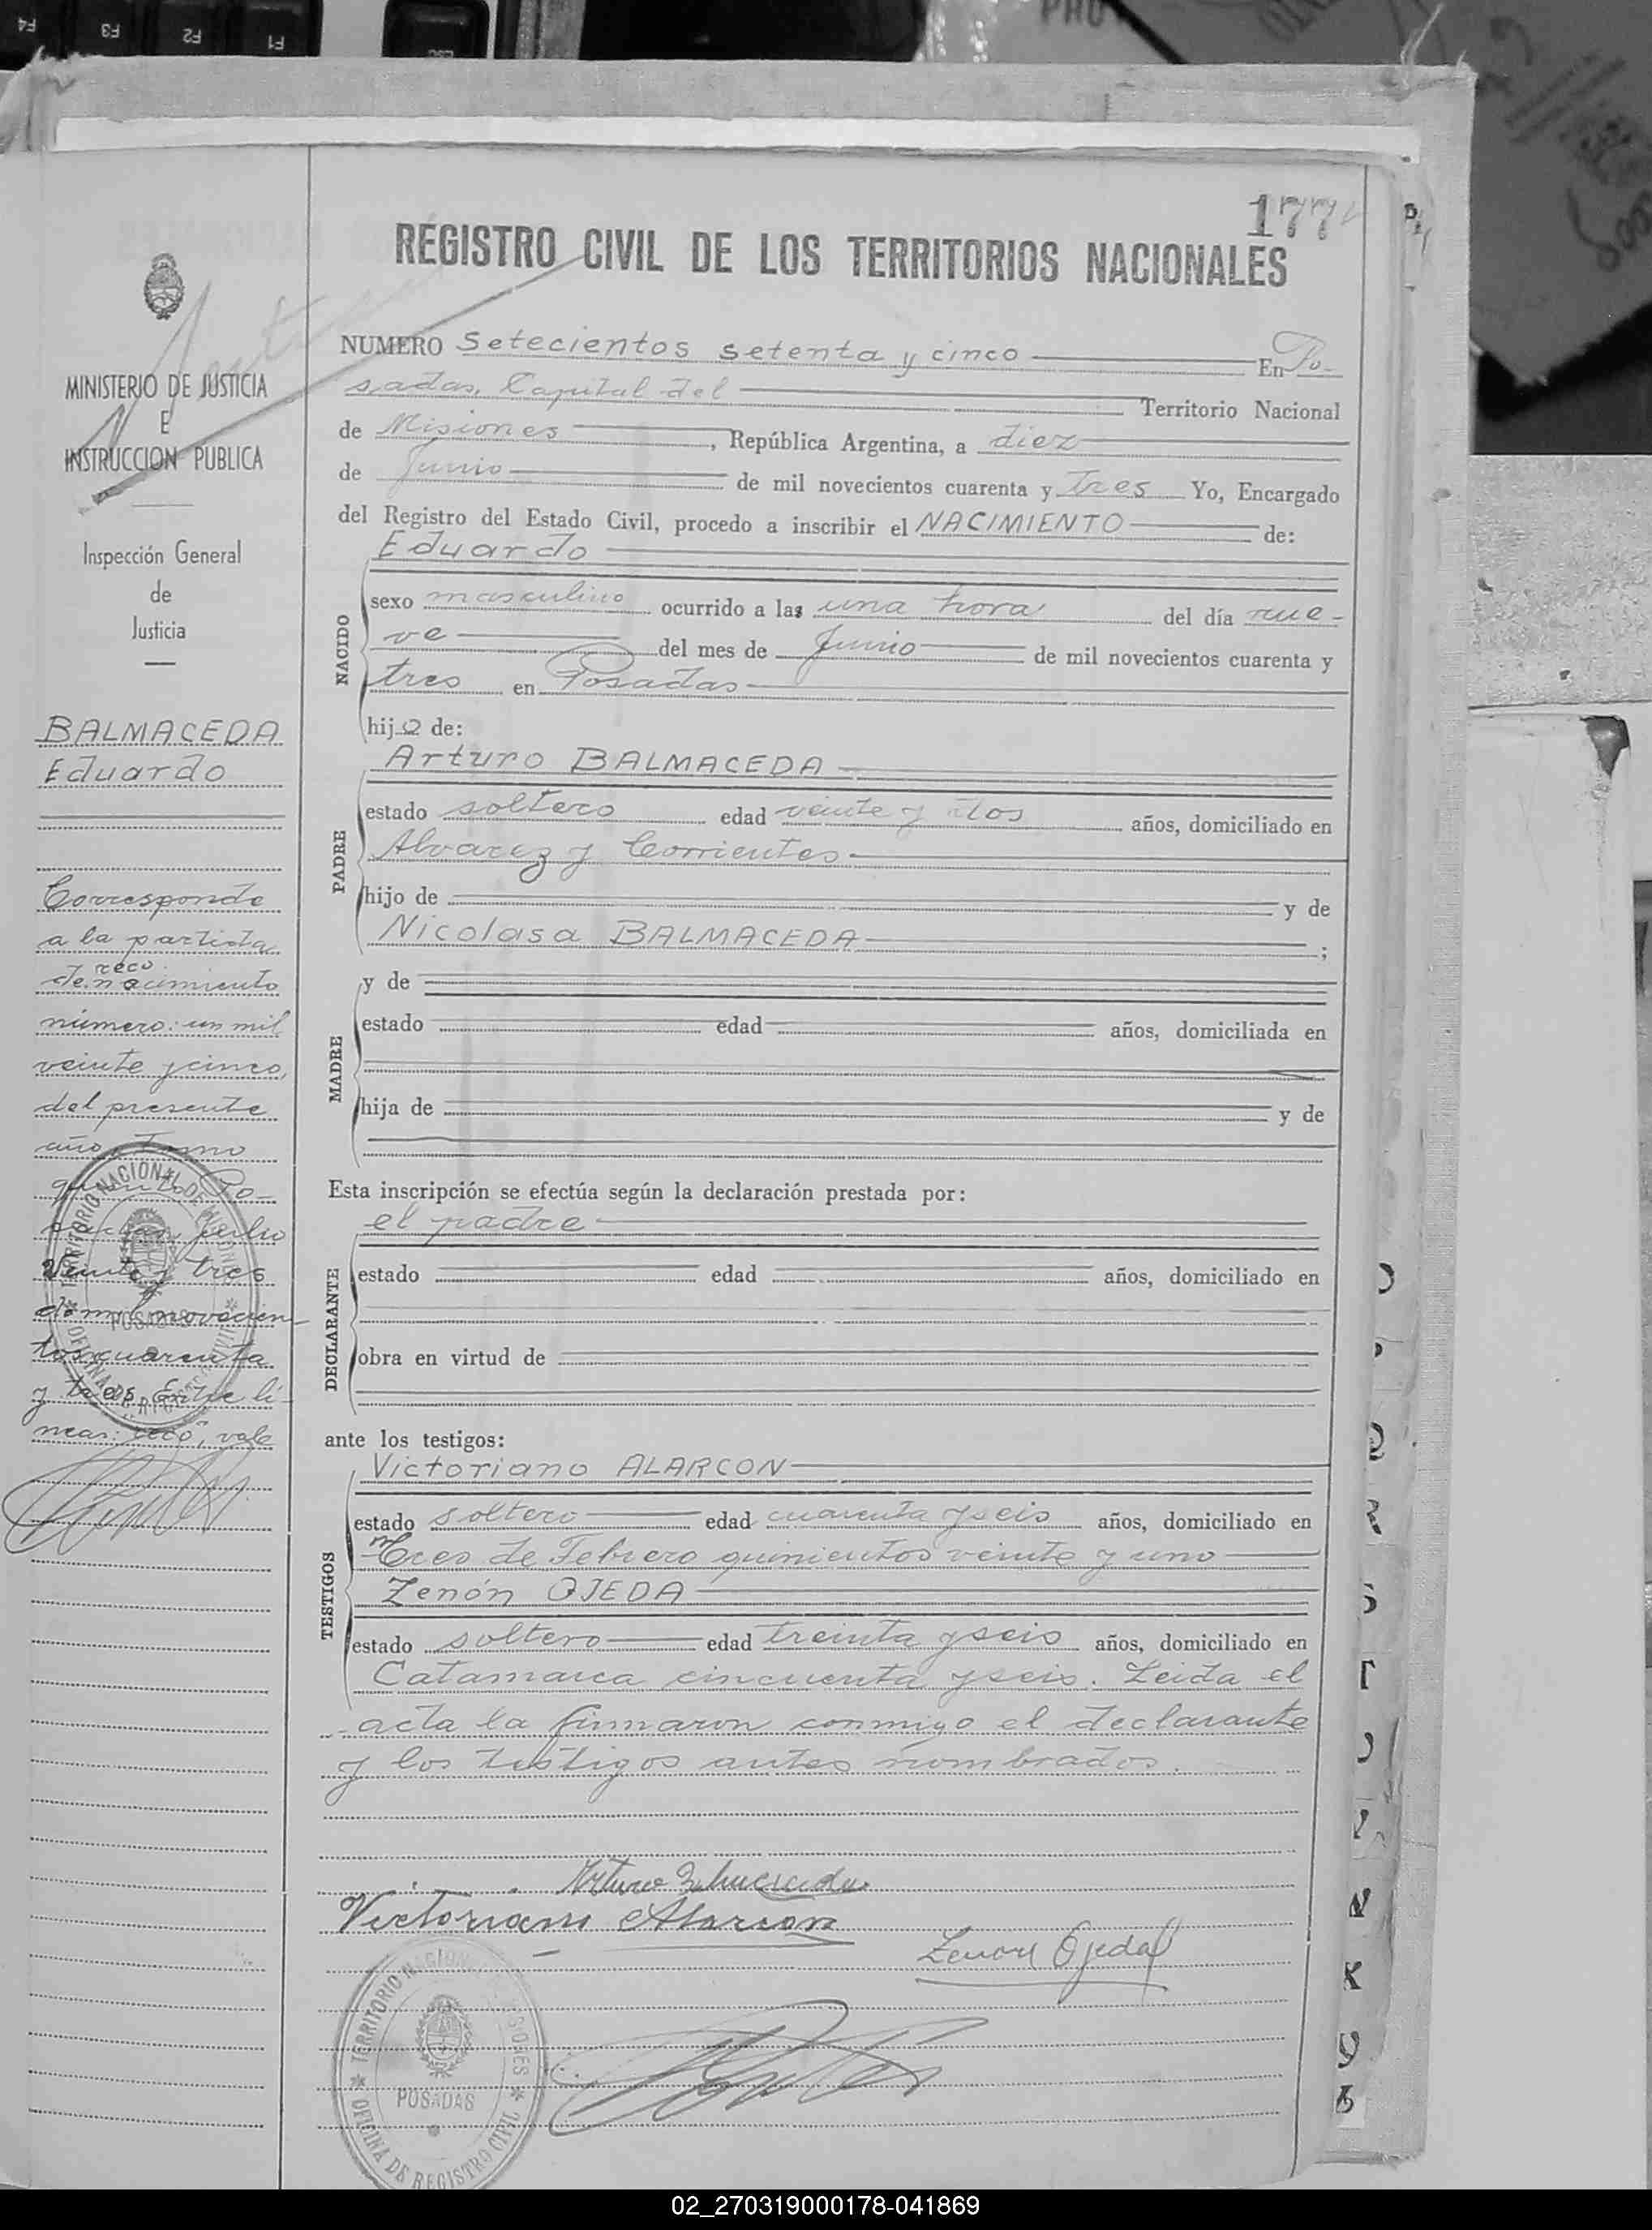 F4 F3 F2 F1
177
REGISTRO CIVIL DE LOS TERRITORIOS NACIONALES
NUMERO Setecientos setenta y cinco En Po-
sadas, Capital del Territorio Nacional
de Misiones, República Argentina, a diez
de Junio de mil novecientos cuarenta y tres Yo, Encargado
del Registro del Estado Civil, procedo a inscribir el NACIMIENTO de:
NACIDO
Eduardo
sexo masculino ocurrido a las una hora del día nue-
ve del mes de Junio de mil novecientos cuarenta y
tres en Posadas
hijo de:
PADRE
Arturo BALMACEDA
estado soltero edad veinte y dos años, domiciliado en
Alvarez y Corrientes
hijo de y de
Nicolasa BALMACEDA ;
MADRE
y de
estado edad años, domiciliada en
hija de y de
Esta inscripción se efectúa según la declaración prestada por:
DECLARANTE
el padre
estado edad años, domiciliado en
obra en virtud de
ante los testigos:
TESTIGOS
Victoriano ALARCON
estado soltero edad cuarenta y seis años, domiciliado en
Tres de Febrero quinientos veinte y uno
Zenón OJEDA
estado soltero edad treinta y seis años, domiciliado en
Catamarca cincuenta y seis. Leida el
acta la firmaron conmigo el declarante
y los testigos antes nombrados.
Arturo Balmaceda
Victoriano Alarcon
Zenon Ojeda
TERRITORIO NACIONAL DE MISIONES
POSADAS
OFICINA DE REGISTRO CIVIL
MINISTERIO DE JUSTICIA
E
INSTRUCCION PUBLICA
Inspección General
de
Justicia
BALMACEDA
Eduardo
Corresponde
a la partida
reco
de nacimiento
número: un mil
veinte y cinco,
del presente
año, Tomo
Po-
Julio
veinte y tres
de mil novecien-
tos cuarenta
y tres. Entre lí-
neas: "reco", vale
TERRITORIO NACIONAL DE MISIONES
POSADAS
OFICINA DE REGISTRO CIVIL
02_270319000178-041869